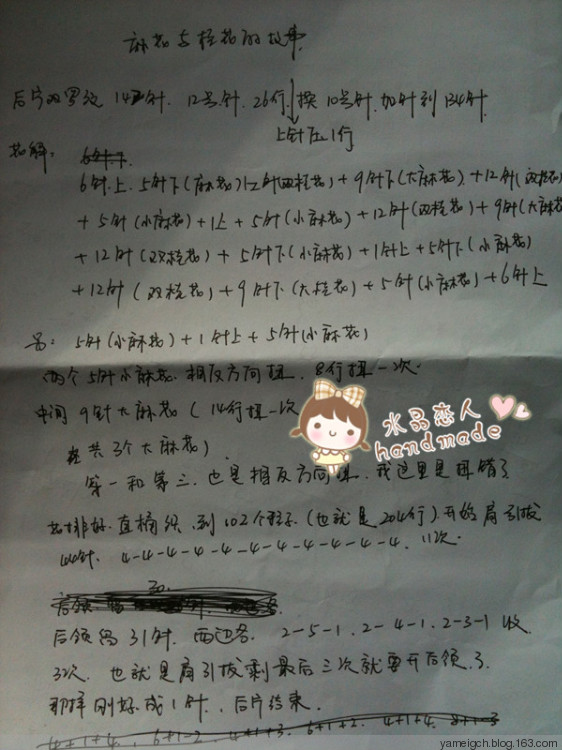 麻花与桂花的故事
后片双罗纹 142针. 12号针. 26行 换10号针. 加针到134针
上针压1行
花解: 6针下.
6针上. 5针下(麻花)12针(双桂花)+9针下(大麻花)+12针(双桂花)
+5针(小麻花)+1上+5针(小麻花)+12针(双桂花)+9针(大麻花
+12针(双桂花)+5针下(小麻花)+1针上+5针下(小麻花)
+12针(双桂花)+9针下(大桂花)+5针(小麻花)+6针上
另: 5针(小麻花)+1针上+5针(小麻花)
两个5针小麻花. 相反方向扭. 8行扭一次
中间9针大麻花(14行扭一次
共3个大麻花)
第一和第三. 也是相反方向扭. 我这里是扭错了
水晶恋人
handmade
花排好. 直桶织. 到102个辫子(也就是204行)开始肩引拔
44针. 4-4-4-4-4-4-4-4-4-4-4. 11次.
后领留31针. 两边各. 2-5-1. 2-4-1. 2-3-1 收
3次. 也就是肩引拔剩最后三次就要开后领了
那样刚好成1针. 后片结束.
4+1+4. 6+1-2 4+1+3. 6+1+2. 4+1+4. 8+1-3
yameigch.blog.163.com